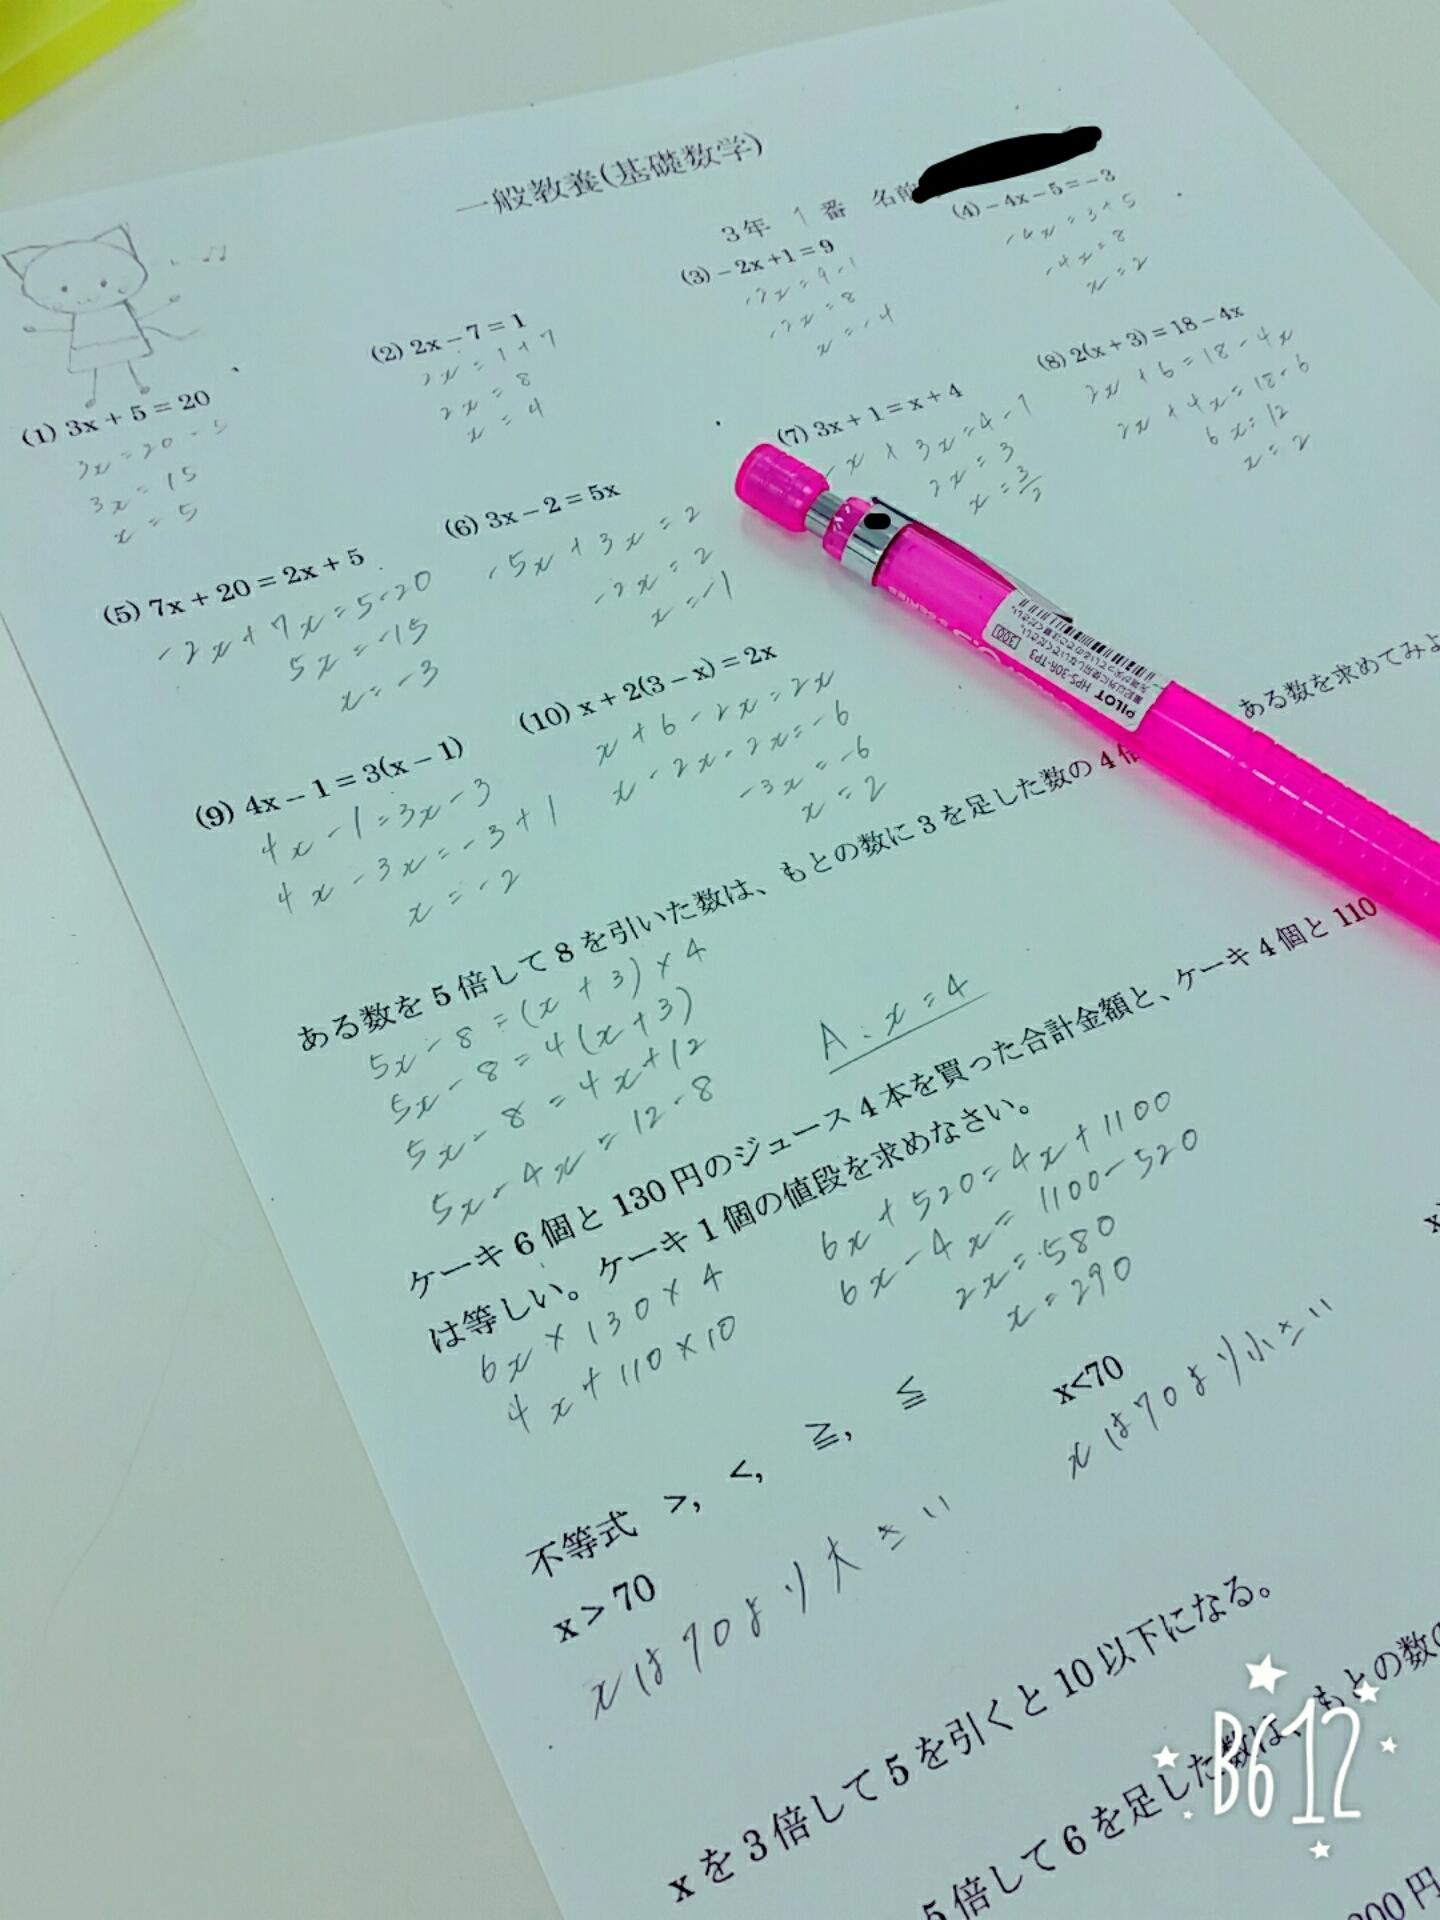 一般教養(基礎数学)
3年 1番 名前
(1) 3x + 5 = 20
3x = 20 - 5
3x = 15
x = 5
(2) 2x - 7 = 1
2x = 1 + 7
2x = 8
x = 4
(3) - 2x + 1 = 9
-2x = 9 - 1
-2x = 8
x = -4
(4) - 4x - 5 = - 3
-4x = 3 + 5
-4x = 8
x = 2
(5) 7x + 20 = 2x + 5
-2x + 7x = 5 - 20
5x = -15
x = -3
(6) 3x - 2 = 5x
-5x + 3x = 2
-2x = 2
x = -1
(7) 3x + 1 = x + 4
-x + 3x = 4 - 1
2x = 3
x = 3/2
(8) 2(x + 3) = 18 - 4x
2x + 6 = 18 - 4x
2x + 4x = 18 - 6
6x = 12
x = 2
(9) 4x - 1 = 3(x - 1)
4x - 1 = 3x - 3
4x - 3x = -3 + 1
x = -2
(10) x + 2(3 - x) = 2x
x + 6 - 2x = 2x
x - 2x - 2x = -6
-3x = -6
x = 2
ある数を5倍して8を引いた数は、もとの数に3を足した数の4倍 ある数を求めてみよ
5x - 8 = (x + 3) × 4
5x - 8 = 4(x + 3)
5x - 8 = 4x + 12
5x - 4x = 12 - 8
A: x = 4
ケーキ6個と130円のジュース4本を買った合計金額と、ケーキ4個と110
は等しい。ケーキ1個の値段を求めなさい。
6x × 130 × 4
4x + 110 × 10
6x + 520 = 4x + 1100
6x - 4x = 1100 - 520
2x = 580
x = 290
不等式 >, <, ≧, ≦
x > 70
xは70より大きい
x<70
xは70より小さい
xを3倍して5を引くと10以下になる。
5倍して6を足した数は、もとの数の
00円
PILOT HPS-30R-TP3
300
B612